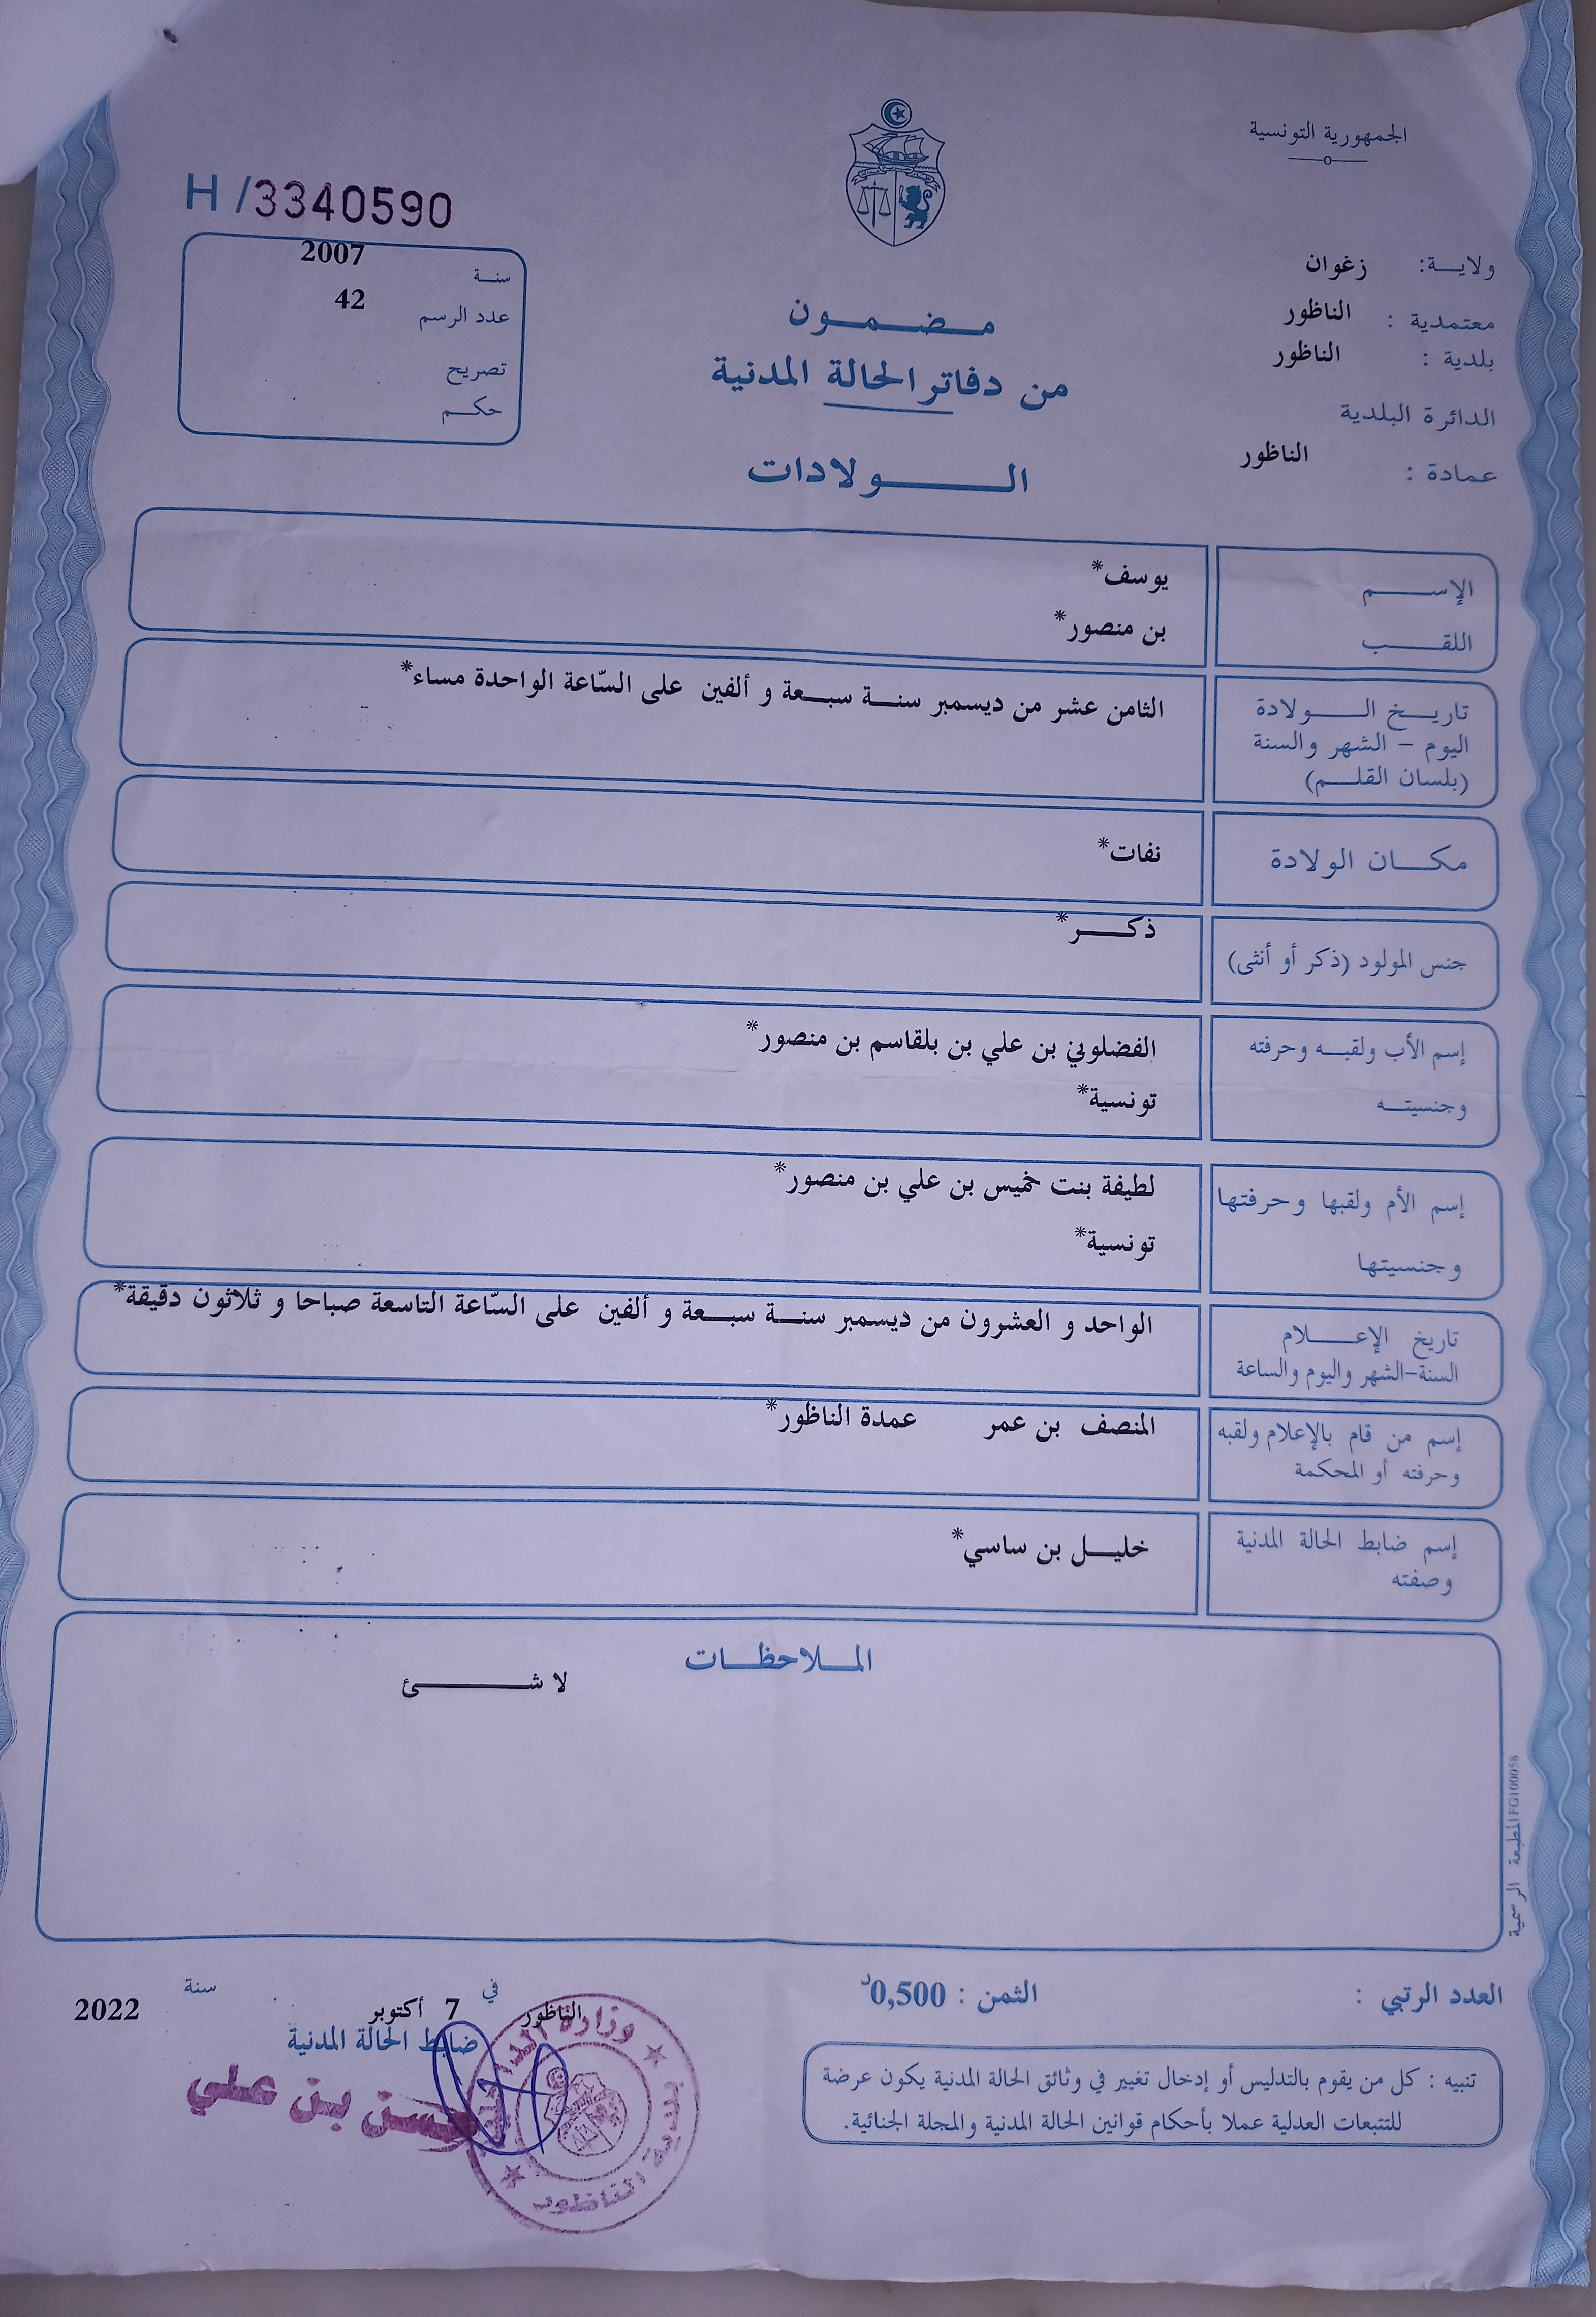 الجمهورية التونسية
H /3340590
ولايـــة: زغوان
معتمدية : الناظور
بلدية : الناظور
الدائرة البلدية
عمادة : الناظور
سنـة 2007
عدد الرسم 42
تصريح
حكـم
مـضـمـون
من دفاتر الحالة المدنية
الـــولادات
الإســـم يوسف*
اللقـــب بن منصور*
تاريـــخ الـــولادة
اليوم - الشهر والسنة
(بلسان القلـــم)
الثامن عشر من ديسمبر سنـــة سبـــعة و ألفين على السّاعة الواحدة مساء*
مكـــان الولادة نفات*
جنس المولود (ذكر أو أنثى) ذكـــر*
إسم الأب ولقبـــه وحرفته الفضلوني بن علي بن بلقاسم بن منصور*
وجنسيتـــه تونسية*
إسم الأم ولقبها وحرفتها لطيفة بنت خميس بن علي بن منصور*
وجنسيتها تونسية*
تاريخ الإعـــلام
السنة-الشهر واليوم والساعة
الواحد و العشرون من ديسمبر سنـــة سبـــعة و ألفين على السّاعة التاسعة صباحا و ثلاثون دقيقة*
إسم من قام بالإعلام ولقبه
وحرفته أو المحكمة
المنصف بن عمر عمدة الناظور*
إسم ضابط الحالة المدنية
وصفته
خليـــل بن ساسي*
المـــلاحظـــات
لا شـــئ
المطبعة الرسمية FG100058
العدد الرتبي :
الثمن : 0,500د
الناظور في 7 أكتوبر سنة 2022
ضابط الحالة المدنية
حسن بن علي
وزارة الداخلية
بلدية الناظور
تنبيه : كل من يقوم بالتدليس أو إدخال تغيير في وثائق الحالة المدنية يكون عرضة
للتتبعات العدلية عملا بأحكام قوانين الحالة المدنية والمجلة الجنائية.